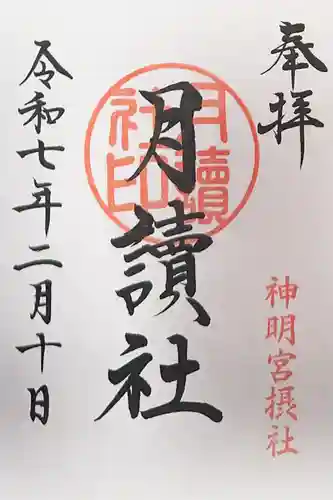 奉拝
神明宮摂社
月讀社
月讀社印
令和七年二月十日